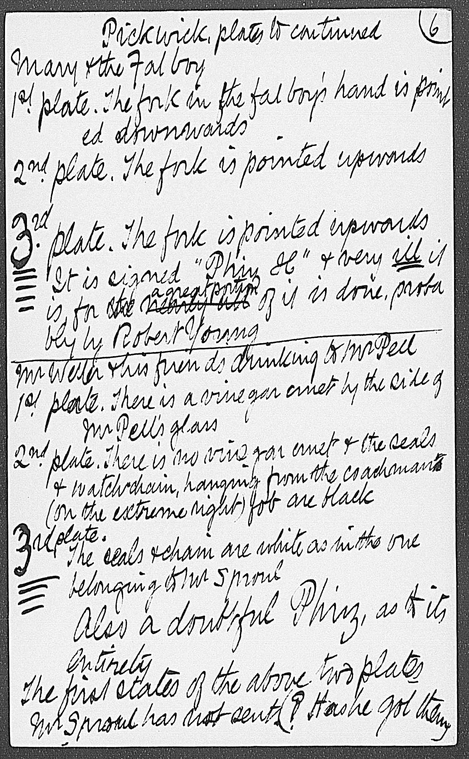 6
Pickwick, plates to continued
Mary & the Fat boy
1st plate. The fork in the fat boy's hand is point
ed downwards
2nd plate. The fork is pointed upwards
3rd plate. The fork is pointed upwards
It is signed "Phiz H" & very ill it
is, for a great portion of it is done, proba
bly by Robert Young
Mr Weller & his friends drinking to Mr Pell
1st plate. There is a vinegar cruet by the side of
Mr Pell's glass
2nd plate. There is no vinegar cruet & the seals
& watchchain, hanging from the coachman's
(on the extreme right) fob are black
3rd plate.
The seals & chain are white as in the one
belonging to Mr Sproul
Also a doubtful Phiz, as to its
entirety
The first states of the above two plates
Mr Sproul has not sent (? Has he got them